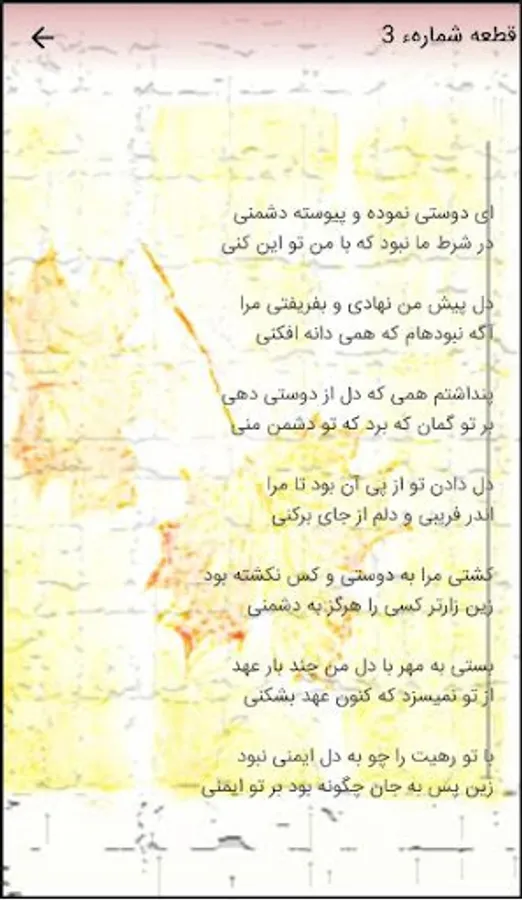 قطعه شمارهء 3
ای دوستی نموده و پیوسته دشمنی
در شرط ما نبود که با من تو این کنی
دل پیش من نهادی و بفریفتی مرا
آگه نبودهام که همی دانه افکنی
پنداشتم همی که دل از دوستی دهی
بر تو گمان که برد که تو دشمن منی
دل دادن تو از پی آن بود تا مرا
اندر فریبی و دلم از جای برکنی
کشتی مرا به دوستی و کس نکشته بود
زین زارتر کسی را هرگز به دشمنی
بستی به مهر با دل من چند بار عهد
از تو نمیسزد که کنون عهد بشکنی
با تو رهیت را چو به دل ایمنی نبود
زین پس به جان چگونه بود بر تو ایمنی